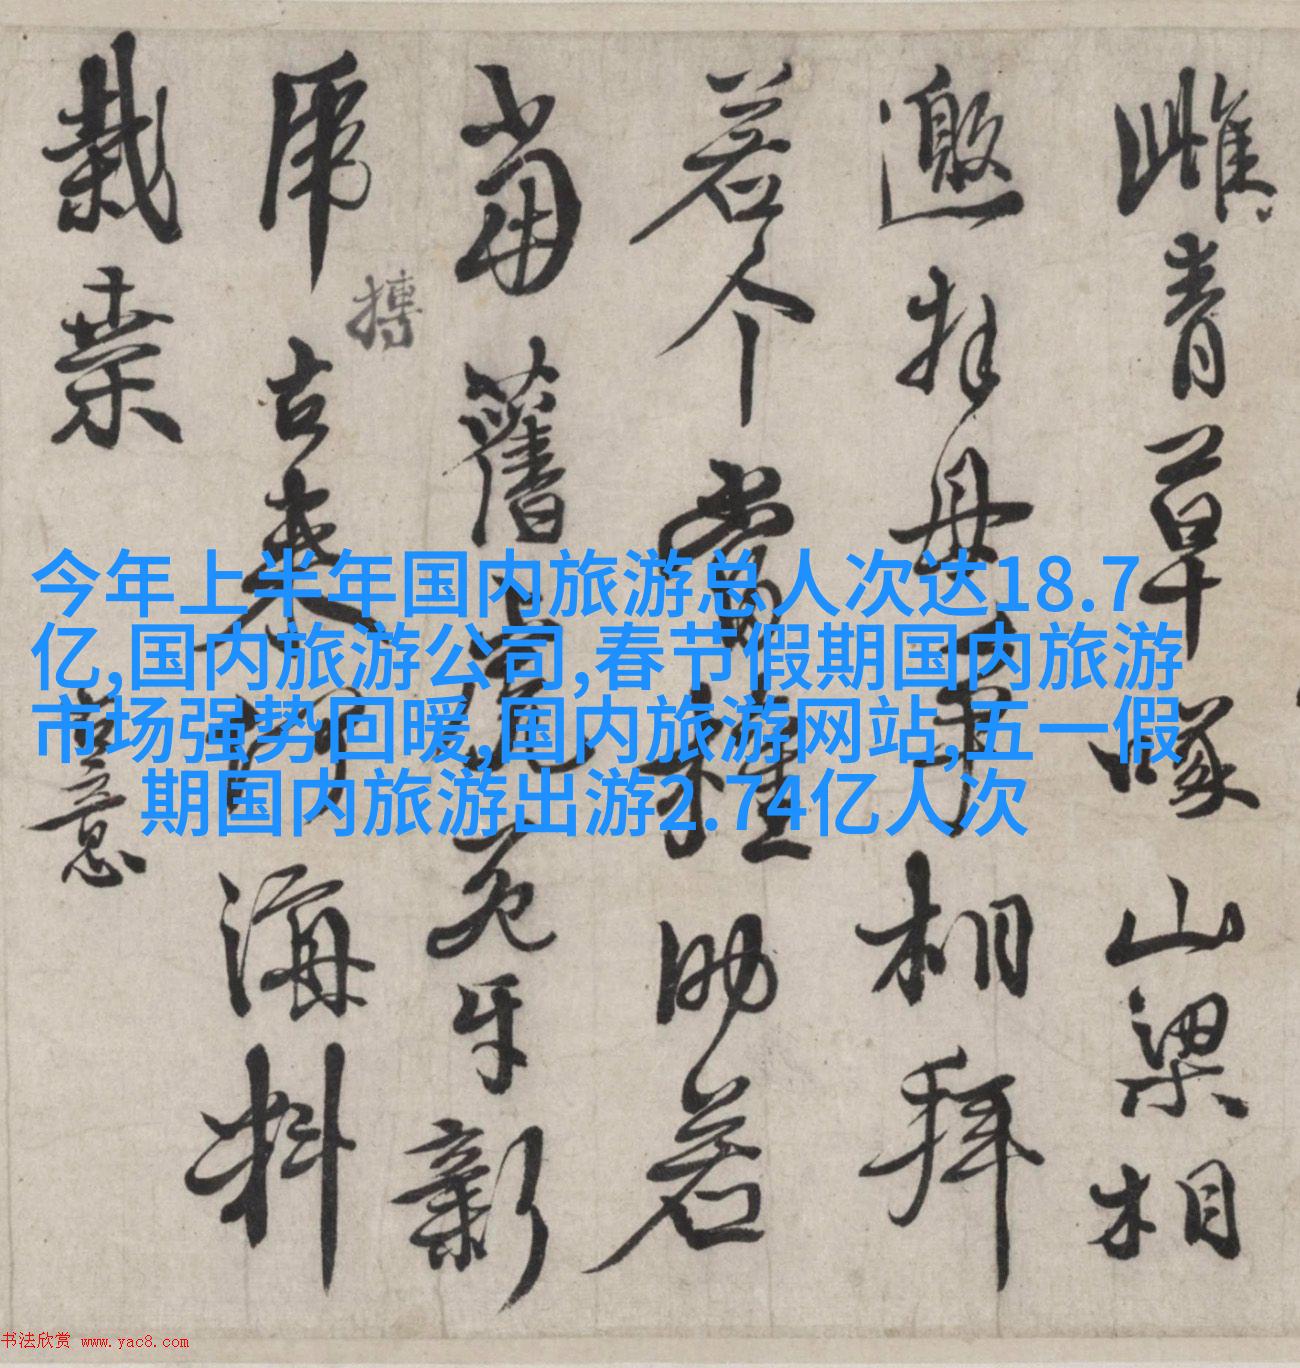 今年上半年国内旅游总人次达18.7
亿,国内旅游公司,春节假期国内旅游
市场强势回暖,国内旅游网站,五一假
期国内旅游出游2.74亿人次
青草山梁相
邀母相拜
若个當助若
舊牙新
古來海料
搏
栽桑
古意
书法欣赏 www.yac8.com